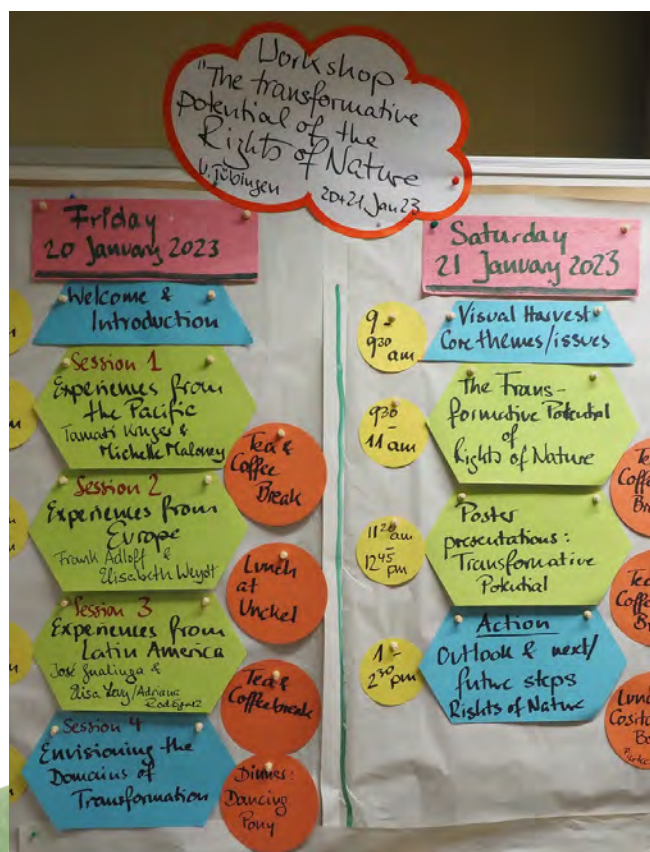 Workshop
"The transformative
potential of the
Rights of Nature
U. Tübingen 20+21 Jan 23
Friday
20 January 2023
Welcome &
Introduction
Session 1
Experiences from
the Pacific
Tamati Kruger &
Michelle Maloney
Tea &
Coffee
Break
Session 2
Experiences from
Europe
Frank Adloff &
Elisabeth Weydt
Lunch
at
Unckel
Session 3
Experiences from
Latin America
José Gualinga &
Elisa Levy/Adriana
Rodríguez
Tea &
Coffeebreak
Session 4
Envisioning the
Domains of
Transformation
Dinner:
Dancing
Pony
Saturday
21 January 2023
9 -
9 30
am
Visual Harvest
Core themes/issues
9 30
-
11 am
The Trans-
formative Potential
of
Rights of Nature
Tea
Coffe
Br
11 20 am
-
12 45
pm
Poster
presentations:
Transformative
Potential
Tea
Coffe
Br
1 -
2 30 pm
Action
Outlook & next/
future steps
Rights of Nature
Lunc
Cosita
Bo